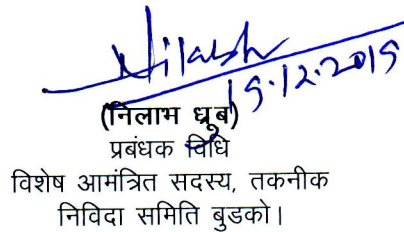 Nilabh
15.12.2015
(निलाभ ध्रुब)
प्रबंधक विधि
विशेष आमंत्रित सदस्य, तकनीक
निविदा समिति बुडको।